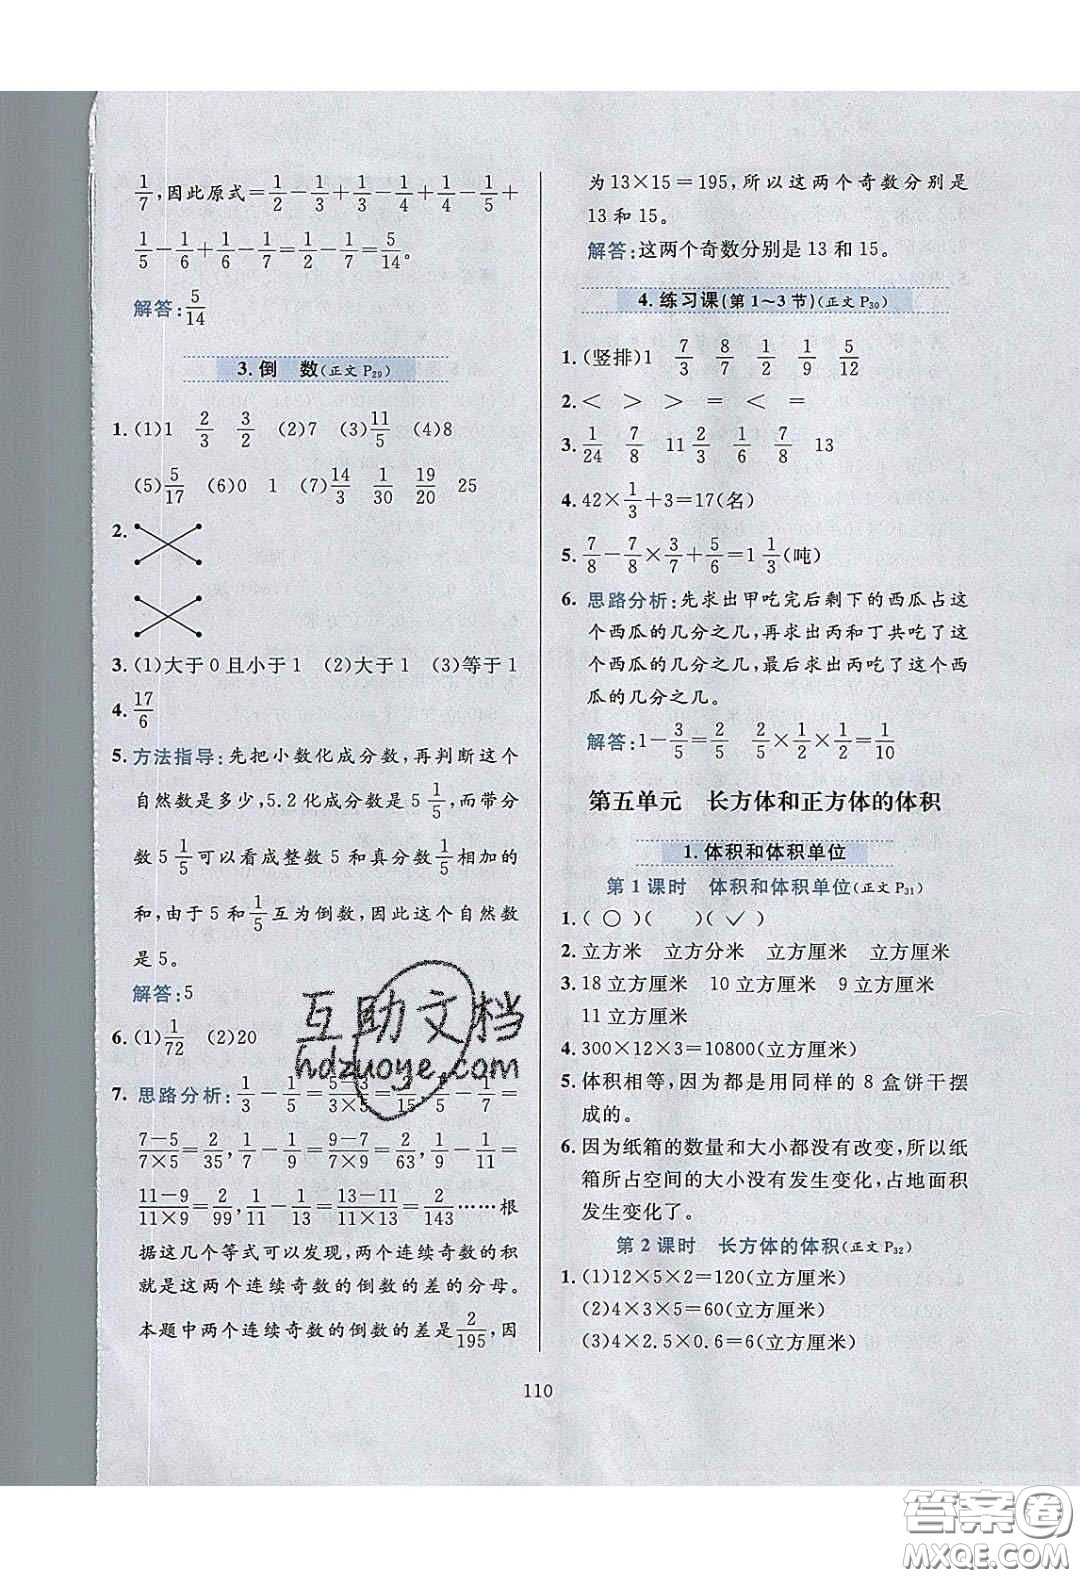 1/7,因此原式=1/2-1/3+1/3-1/4+1/4-1/5+
1/5-1/6+1/6-1/7=1/2-1/7=5/14。
解答:5/14
3.倒 数(正文 P29)
1.(1)1 2/3 3/2 (2)7 (3)11/5 (4)8
(5)5/17 (6)0 1 (7)14/3 1/30 19/20 25
2.
3.(1)大于0且小于1 (2)大于1 (3)等于1
4.17/6
5.方法指导:先把小数化成分数,再判断这个
自然数是多少,5.2化成分数是5 1/5,而带分
数5 1/5可以看成整数5和真分数1/5相加的
和,由于5和1/5互为倒数,因此这个自然数
是5。
解答:5
6.(1)1/72 (2)20
7.思路分析:1/3-1/5=5-3/3×5=2/15,1/5-1/7=
7-5/7×5=2/35,1/7-1/9=9-7/7×9=2/63,1/9-1/11=
11-9/11×9=2/99,1/11-1/13=13-11/11×13=2/143……根
据这几个等式可以发现,两个连续奇数的积
就是这两个连续奇数的倒数的差的分母。
本题中两个连续奇数的倒数的差是2/195,因
为13×15=195,所以这两个奇数分别是
13和15。
解答:这两个奇数分别是13和15。
4.练习课(第1~3节)(正文 P30)
1.(竖排)1 7/3 8/7 1/2 1/9 5/12
2.< > > = < =
3.1/24 7/8 11 2/3 1/6 7/8 13
4.42×1/3+3=17(名)
5.7/8-7/8×3/7+5/6=1 1/3(吨)
6.思路分析:先求出甲吃完后剩下的西瓜占这
个西瓜的几分之几,再求出丙和丁共吃了这
个西瓜的几分之几,最后求出丙吃了这个西
瓜的几分之几。
解答:1-3/5=2/5 2/5×1/2×1/2=1/10
第五单元 长方体和正方体的体积
1.体积和体积单位
第1课时 体积和体积单位(正文 P31)
1.(○)( )(✓)
2.立方米 立方分米 立方厘米 立方厘米
3.18立方厘米 10立方厘米 9立方厘米
11立方厘米
4.300×12×3=10800(立方厘米)
5.体积相等,因为都是用同样的8盒饼干摆
成的。
6.因为纸箱的数量和大小都没有改变,所以纸
箱所占空间的大小没有发生变化,占地面积
发生变化了。
第2课时 长方体的体积(正文 P32)
1.(1)12×5×2=120(立方厘米)
(2)4×3×5=60(立方厘米)
(3)4×2.5×0.6=6(立方厘米)
110
互助文档
hdzuoye.com
答案圈
MXQE.COM